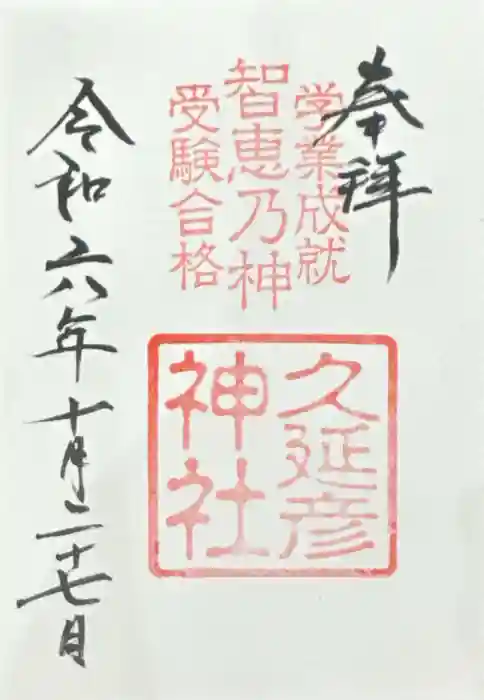 奉拝
学業成就
智恵乃神
受験合格
久延彦
神社
令和六年十月二十七日